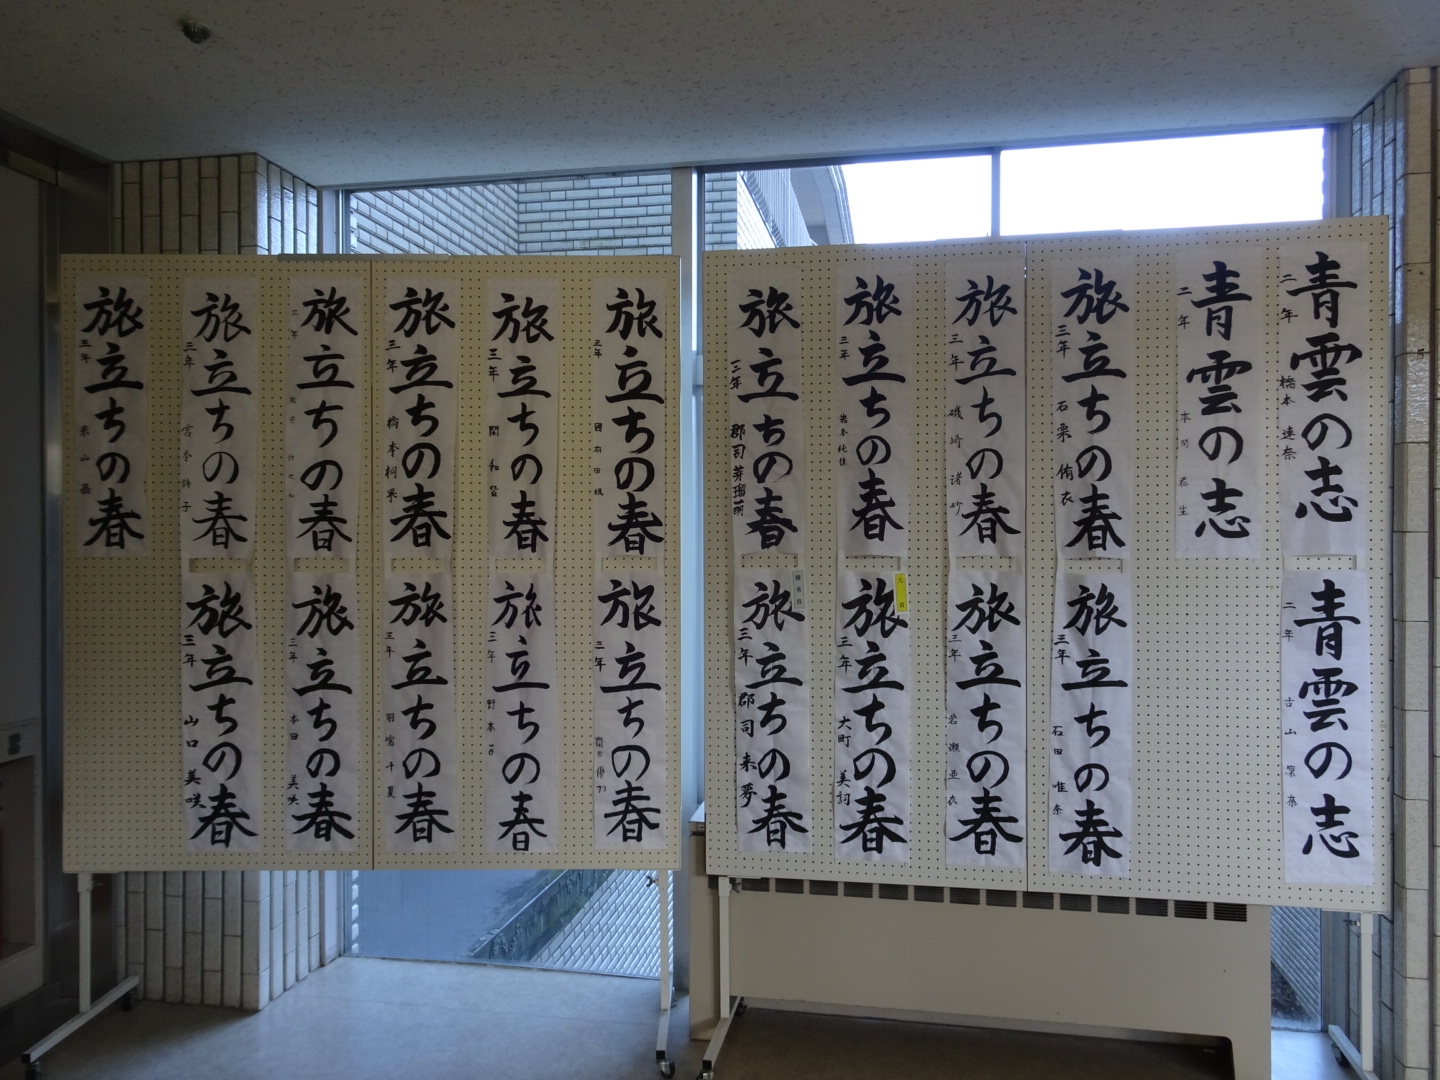 青雲の志
二年
橋本
青雲の志
二年
青雲の志
二年
本間
旅立ちの春
三年
石栗 侑衣
旅立ちの春
三年
石田 唯奈
旅立ちの春
三年
磯崎 渚紗
旅立ちの春
三年
岩瀬 亜衣
旅立ちの春
三年
旅立ちの春
三年
大町 美詞
旅立ちの春
三年
郡司 芽瑠萌
旅立ちの春
三年
郡司 来夢
旅立ちの春
三年
旅立ちの春
三年
旅立ちの春
三年
関
旅立ちの春
三年
野本
旅立ちの春
三年
橋本
旅立ちの春
三年
羽
千夏
旅立ちの春
三年
旅立ちの春
三年
本田 美咲
旅立ちの春
三年
宮本 詩子
旅立ちの春
三年
山口 美咲
旅立ちの春
三年